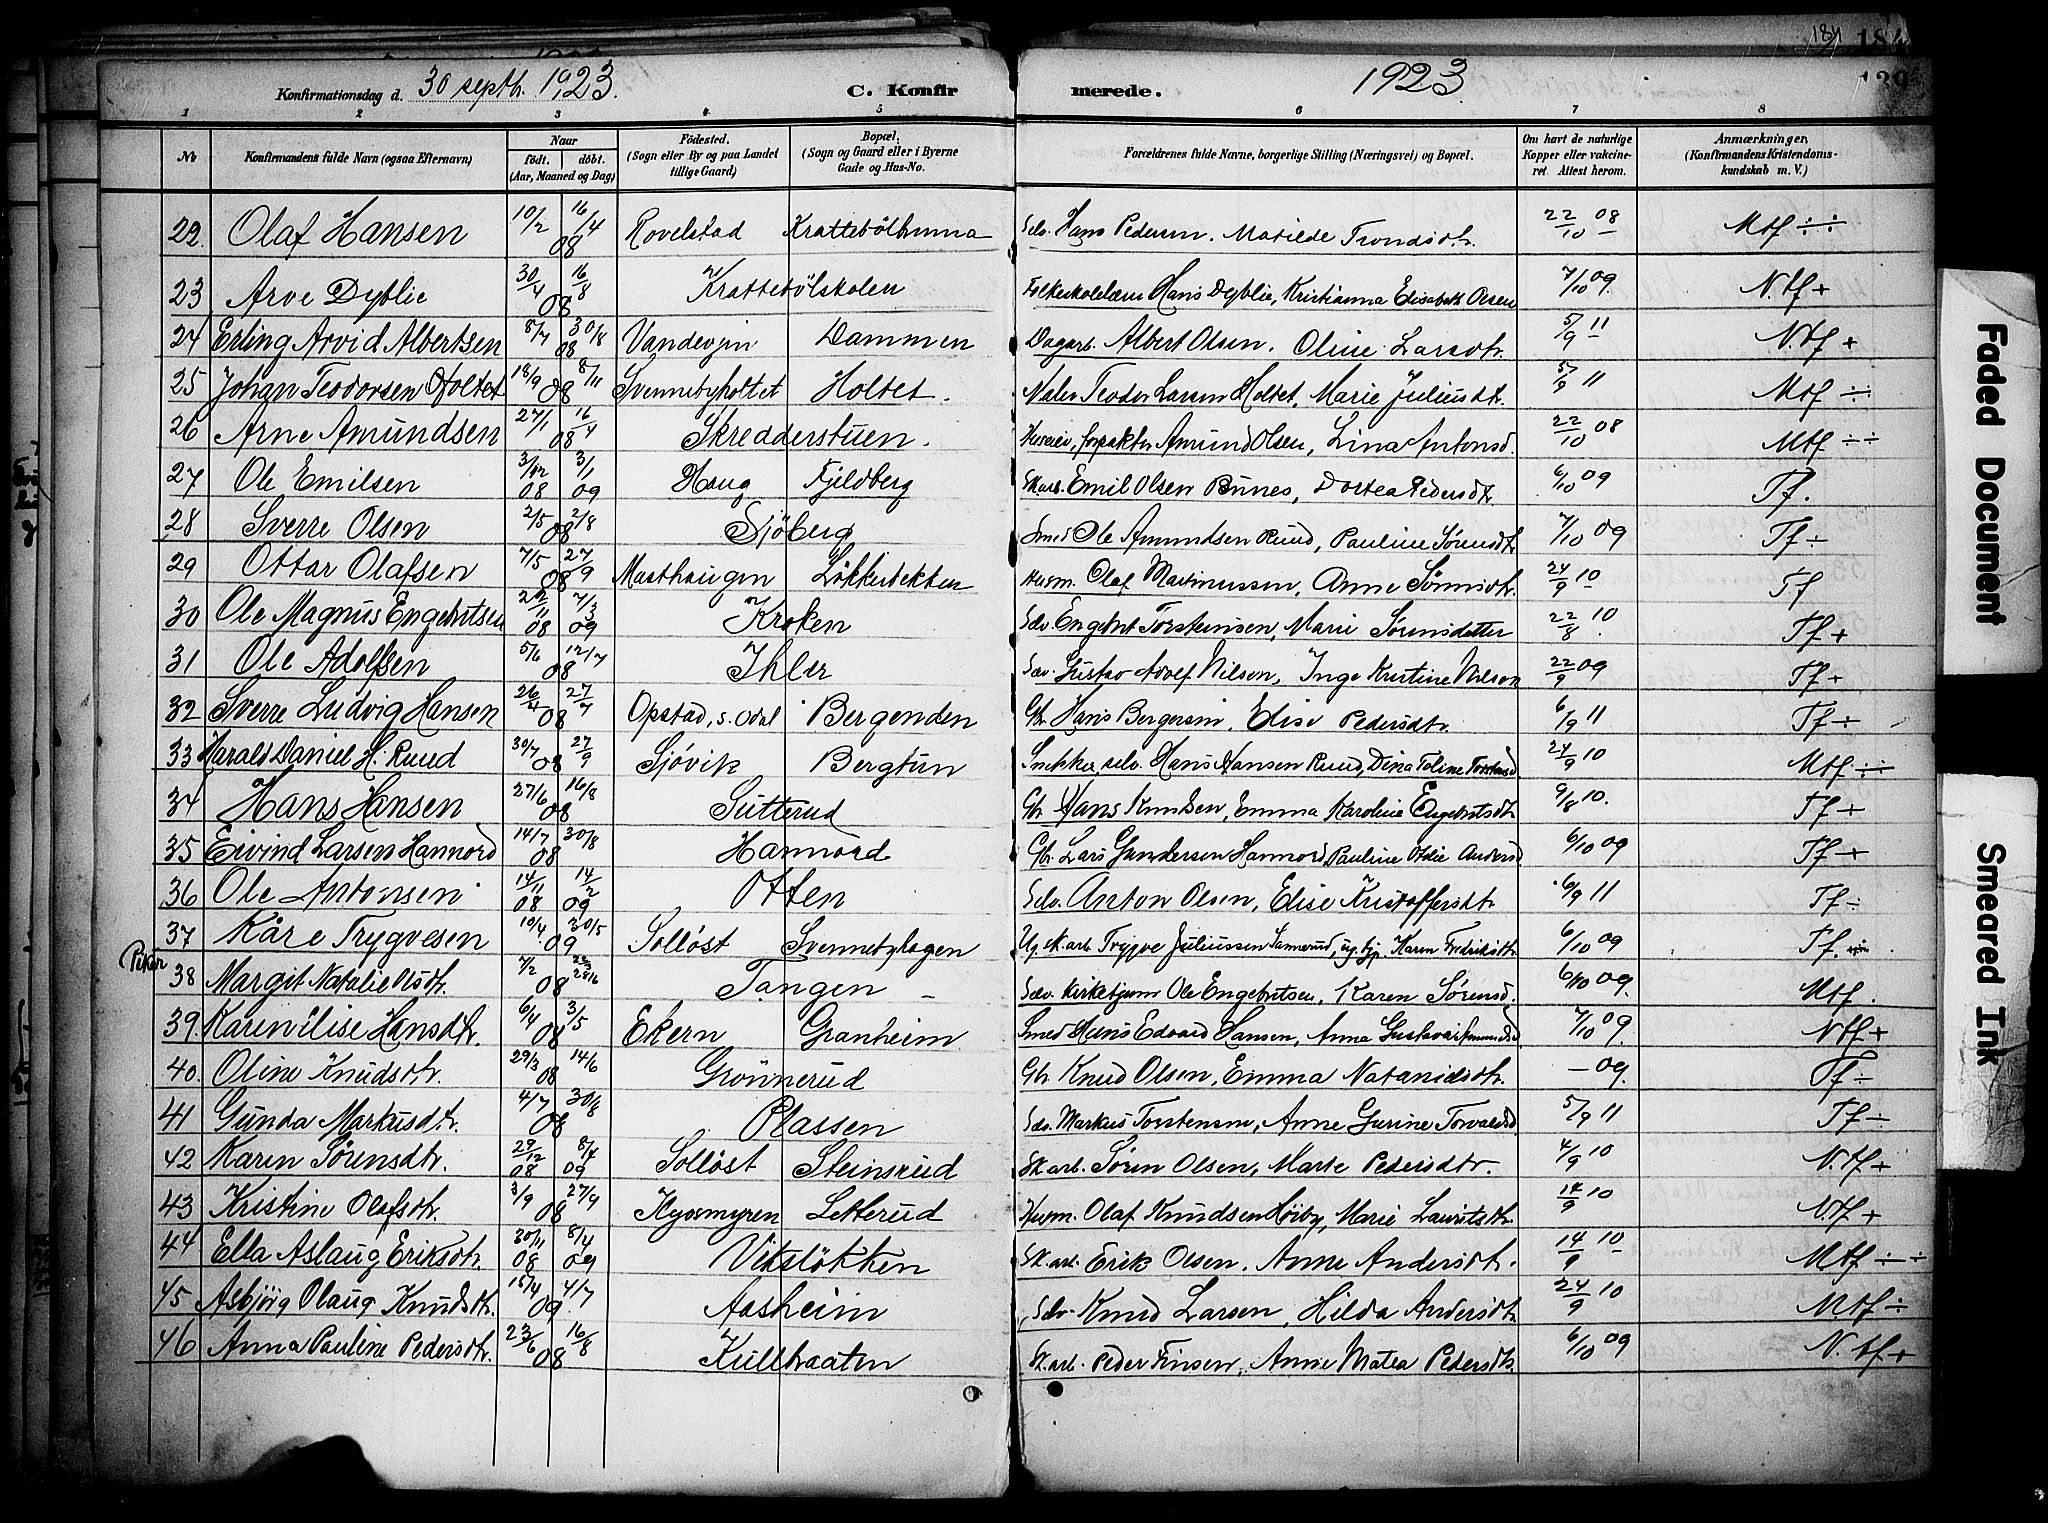 184 184
139
Konfirmationsdag d. 30 septbr. 1923. C. Konfir merede. 1923
1 2 3 4 5 6 7 8
No Konfirmandens fulde Navn (ogsaa Efternavn) Naar födt. döbt. (Aar, Maaned og Dag) Födested. (Sogn eller By og paa Landet tillige Gaard) Bopæl. (Sogn og Gaard eller i Byerne Gade og Hus-No. Forældrenes fulde Navne, borgerlige Stilling (Næringsvei) og Bopæl. Om havt de naturlige Kopper eller vakcineret. Attest herom. Anmærkninger. (Konfirmandens Kristendomskundskab m. V.)
22. Olaf Hansen 10/2 16/4 08 Rovelstad Selv. Hans Pedersen. Matilde Trondsdtr. 22/10 08 Mtf ÷÷
23 Arve Dyblie 30/4 16/8 08 Krattebölskolen Hans Dyblie, Kristianna Elisabeth Olsen 7/10 09. N.tf +
24 Erling Arvid Albertsen 8/7 30/8 08 Dammen Dagarb. Albert Olsen. Oline Larsdtr. 5/9 11 N.tf +
25 Johan Teodorsen Holtet 18/9 8/11 08 Svennebyholtet Holtet. Teodor Larsen Holtet, Marie Juliusdtr. 5/9 11 Mtf ÷
26 Arne Amundsen 27/1 16/4 08 Skredderstuen. Amund Olsen, Lina Antonsd. 22/10 08 Mtf ÷÷
27 Ole Emilsen 3/12 08 3/1 09 Haug Fjeldberg Skarb. Emil Olsen Bunes, Dortea Pedersdtr 6/10 09 Tf.
28 Sverre Olsen 2/5 2/8 08 Sjöberg Smed Ole Amundsen Ruud, Pauline Sørensdtr 7/10 09 Tf ÷
29 Ottar Olafsen 7/5 27/9 08 Masthaugen Løkkerbekken Husm. Olaf Martinussen, Anne Sørensdtr. 24/9 10 Tf
30 Ole Magnus Engebretsen 08 7/3 09 Kroken Selv Engebret Torsteinsen, Marie Sørensdatter 22/8 10 Tf +
31 Ole Adolfsen 5/6 12/7 08 Ihler Selv Gustav Adolf Nilsen, Inga Kristine Nilson 22/9 09 Tf +
32 Sverre Ludvig Hansen 26/4 27/7 08 Opstad, s. Odal Bergenden Gbr. Hans Bergersen, Elise Pedersdtr. 6/9 11 Tf ÷
33 Harald Daniel H. Ruud 30/7 27/9 08 Sjövik Bergtun Snekker, selv. Hans Hansen Ruud, Dina Taline Torstensd 24/9 10 Mtf ÷÷
34 Hans Hansen 27/6 16/8 08 Sutterud Gbr Hans Knudsen, Emma Karoline Engebretsdtr 9/8 10. Tf +
35 Eivind Larsen Hannord 14/7 30/8 08 Hannord Gbr. Lars Gundersen Hannord, Pauline Otilie Andersd. 6/10 09 Tf +
36 Ole Antonsen 14/11 08 14/2 09 Otten Selv. Anton Olsen, Elise Kristoffersdtr 6/9 11 Tf ÷
37 Kåre Trygvesen 10/4 30/5 09 Solløst Svennebyhagen Ug. sk.arb Trygve Juliussen Sannerud, ug. tj. Karen Fredriksdtr 6/10 09 Tf.
Piker
38 Margit Natalie Olsdtr. 7/2 08 Tangen Selv. kirketjener Ole Engebretsen, Karen Sørensd. 6/10 09. Mtf.
39. Karen Elise Hansdtr. 6/4 3/5 08 Ekern Granheim Smed Hans Edvard Hansen, Anna Gustava Amundsd 7/10 09. Ntf +
40. Oline Knudsdtr. 29/3 14/6 08 Grønnerud Gbr Knud Olsen, Emma Natanielsdtr. – 09. Tf ÷
41 Gunda Markusdtr. 4/7 30/8 08 Plassen Selv. Markus Torstensen, Anne Gurine Torvaldsd 5/9 11 Tf ÷
42 Karen Sørensdtr. 29/12 08 8/4 09 Solløst Steinsrud Sk.arb. Sören Olsen, Marte Pedersdtr. 4/9 10 N.tf +
43 Kristine Olafsdtr. 3/9 27/9 08 Letterud Husm. Olaf Knudsen Høiby, Marie Lauritsdtr. 14/9 10 N.tf +
44 Ella Aslaug Eriksdtr 30/11 08 8/4 09 Vikslökken Sk.arb. Erik Olsen. Anne Andersdtr. 14/9 10 Mtf ÷ ÷
45 Asbjörg Olaug Knudsdtr. 15/4 4/7 09. Aasheim Selv. Knud Larsen, Hilda Andersdtr 24/9 10 M.tf ÷
46 Anna Pauline Pedersdtr. 23/6 16/8 08 Kullbraaten Sk.arb. Peder Finsen, Anne Matea Pedersdtr. 6/10 09 N. tf +
Faded Document
Smeared Ink